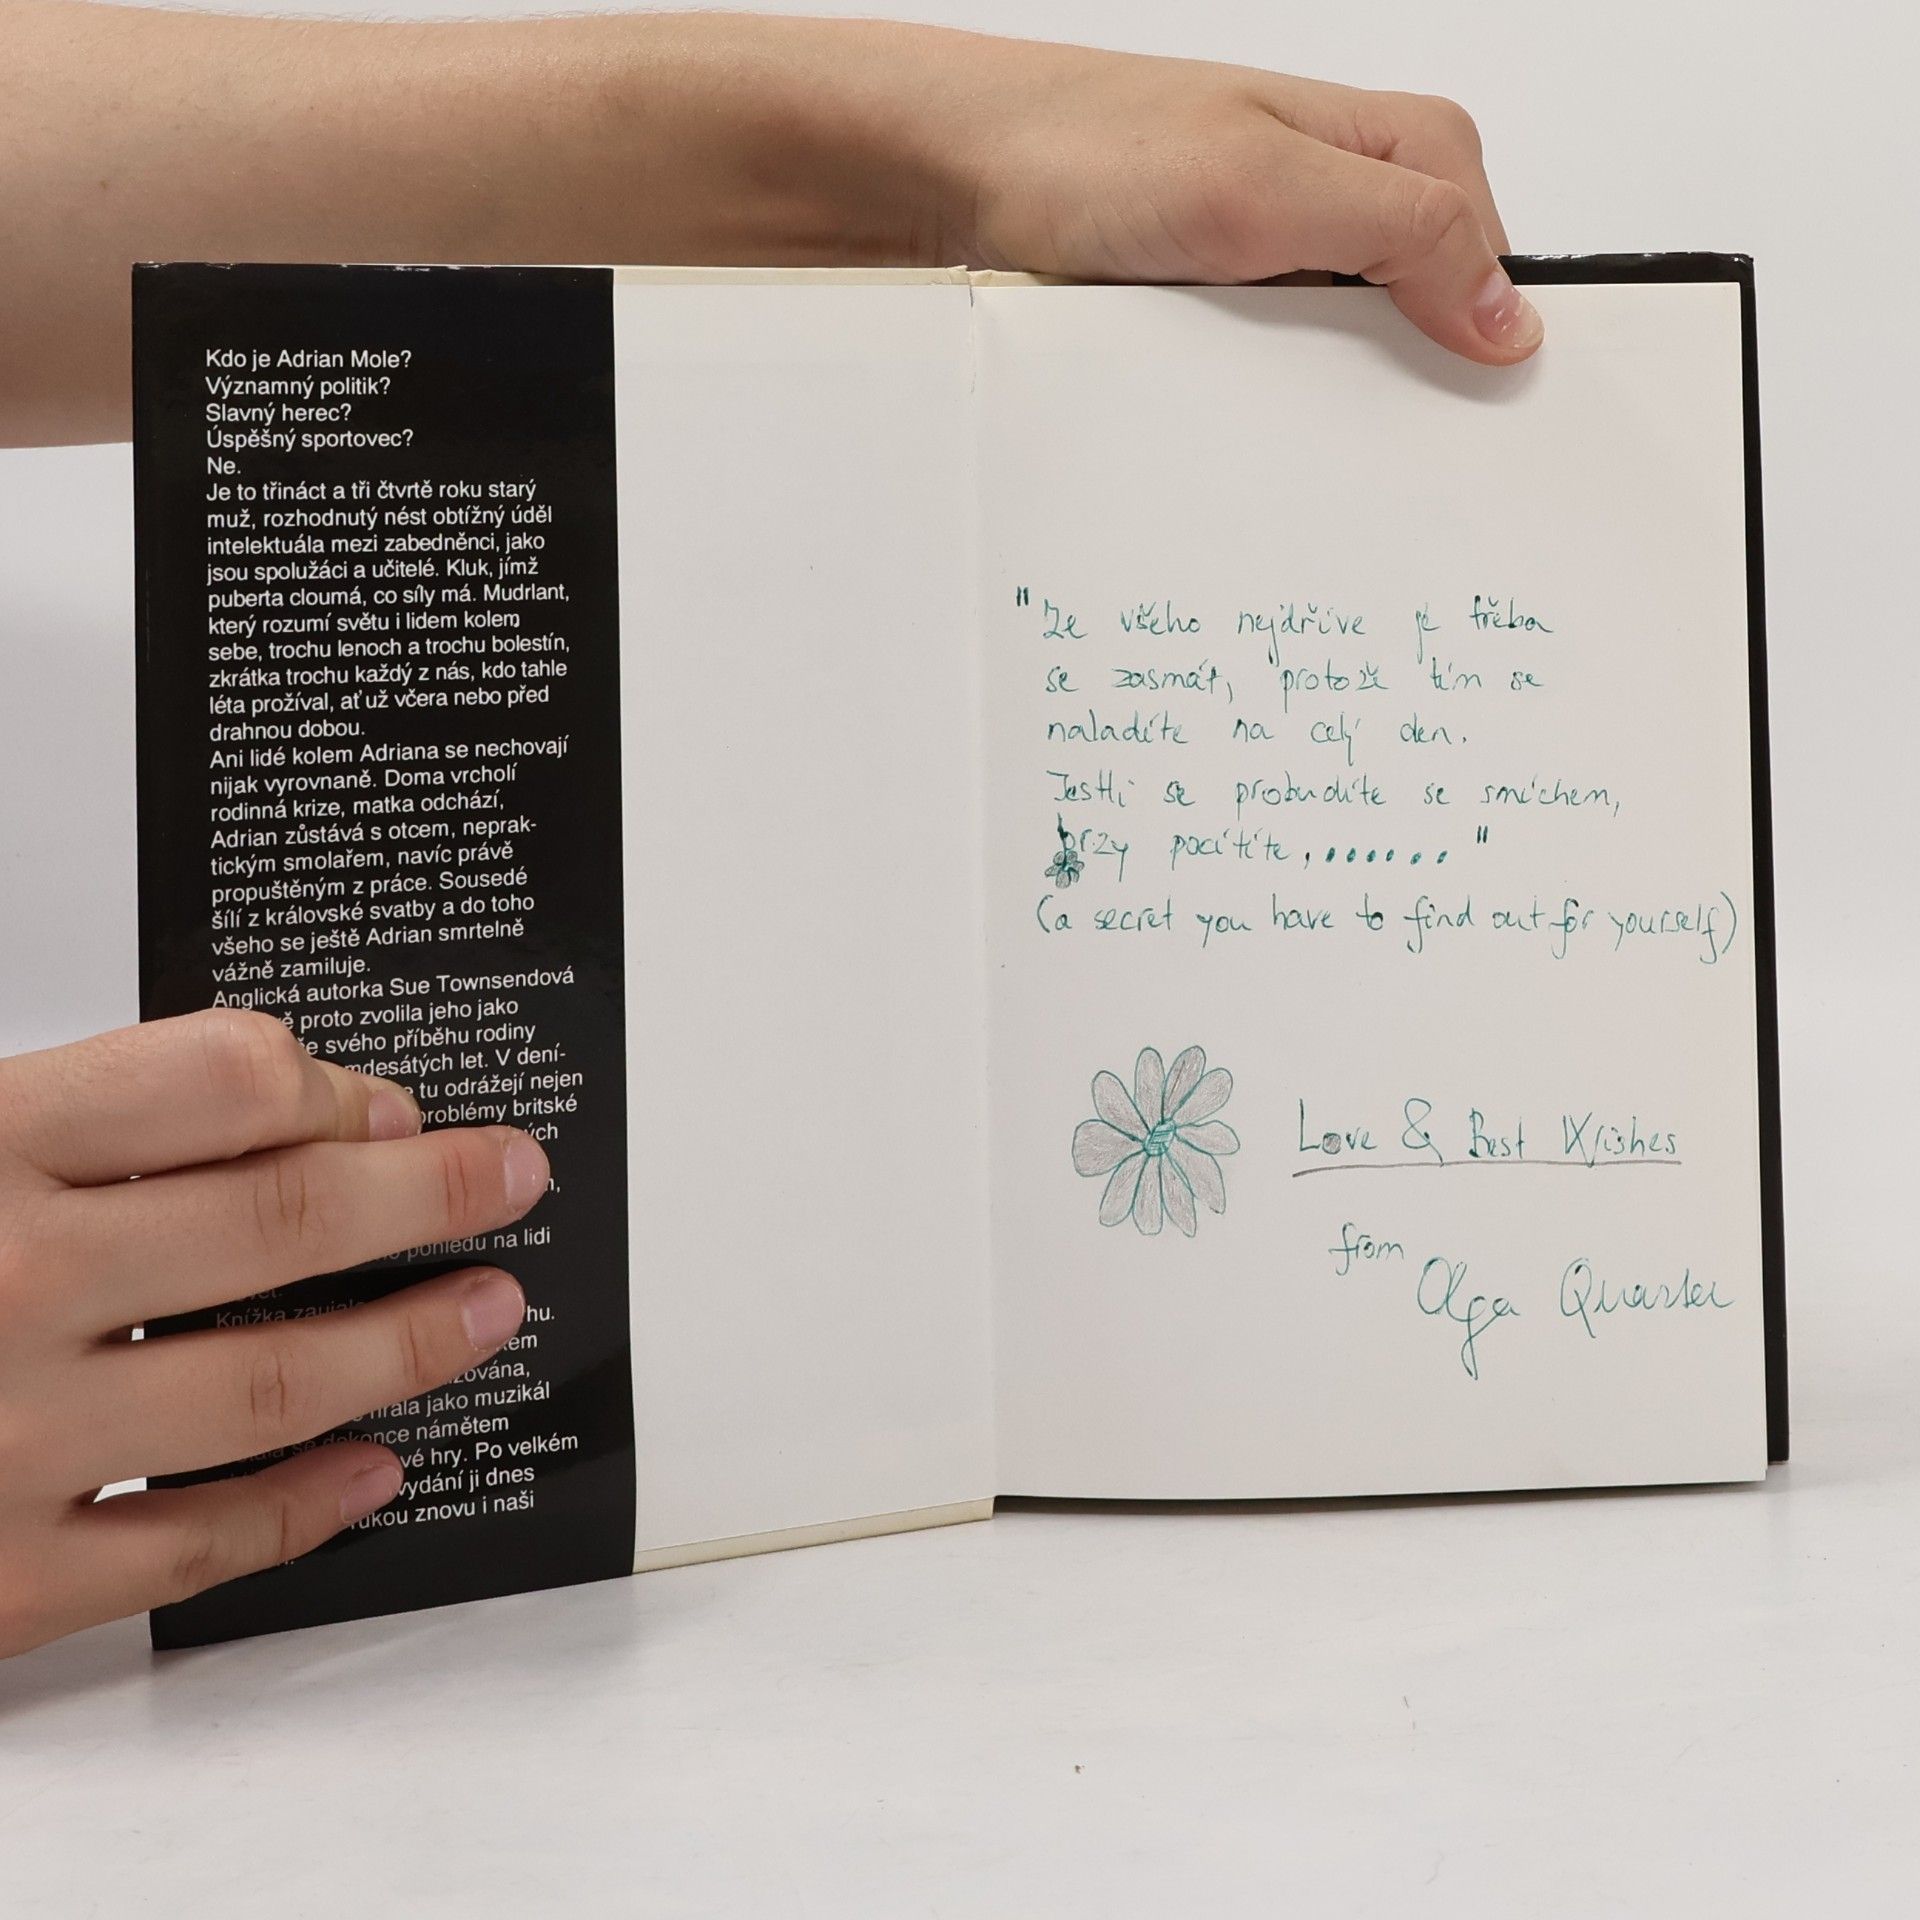 Kdo je Adrian Mole?
Významný politik?
Slavný herec?
Úspěšný sportovec?
Ne.
Je to třináct a tři čtvrtě roku starý
muž, rozhodnutý nést obtížný úděl
intelektuála mezi zabedněnci, jako
jsou spolužáci a učitelé. Kluk, jímž
puberta cloumá, co síly má. Mudrlant,
který rozumí světu i lidem kolem
sebe, trochu lenoch a trochu bolestín,
zkrátka trochu každý z nás, kdo tahle
léta prožíval, ať už včera nebo před
drahnou dobou.
Ani lidé kolem Adriana se nechovají
nijak vyrovnaně. Doma vrcholí
rodinná krize, matka odchází,
Adrian zůstává s otcem, neprak-
tickým smolařem, navíc právě
propuštěným z práce. Sousedé
šílí z královské svatby a do toho
všeho se ještě Adrian smrtelně
vážně zamiluje.
Anglická autorka Sue Townsendová
proto zvolila jeho jako
svého příběhu rodiny
let. V dení-
tu odrážejí nejen
problémy britské
pohledu na lidi
Knížka
jako muzikál
se dokonce námětem
hry. Po velkém
vydání ji dnes
znovu i naši
"Ze všeho nejdříve je třeba
se zasmát, protože tím se
naladíte na celý den.
Jestli se probudíte se smíchem,
brzy pocítíte, ...... "
(a secret you have to find out for yourself)
Love & Best Wishes
from
Olga